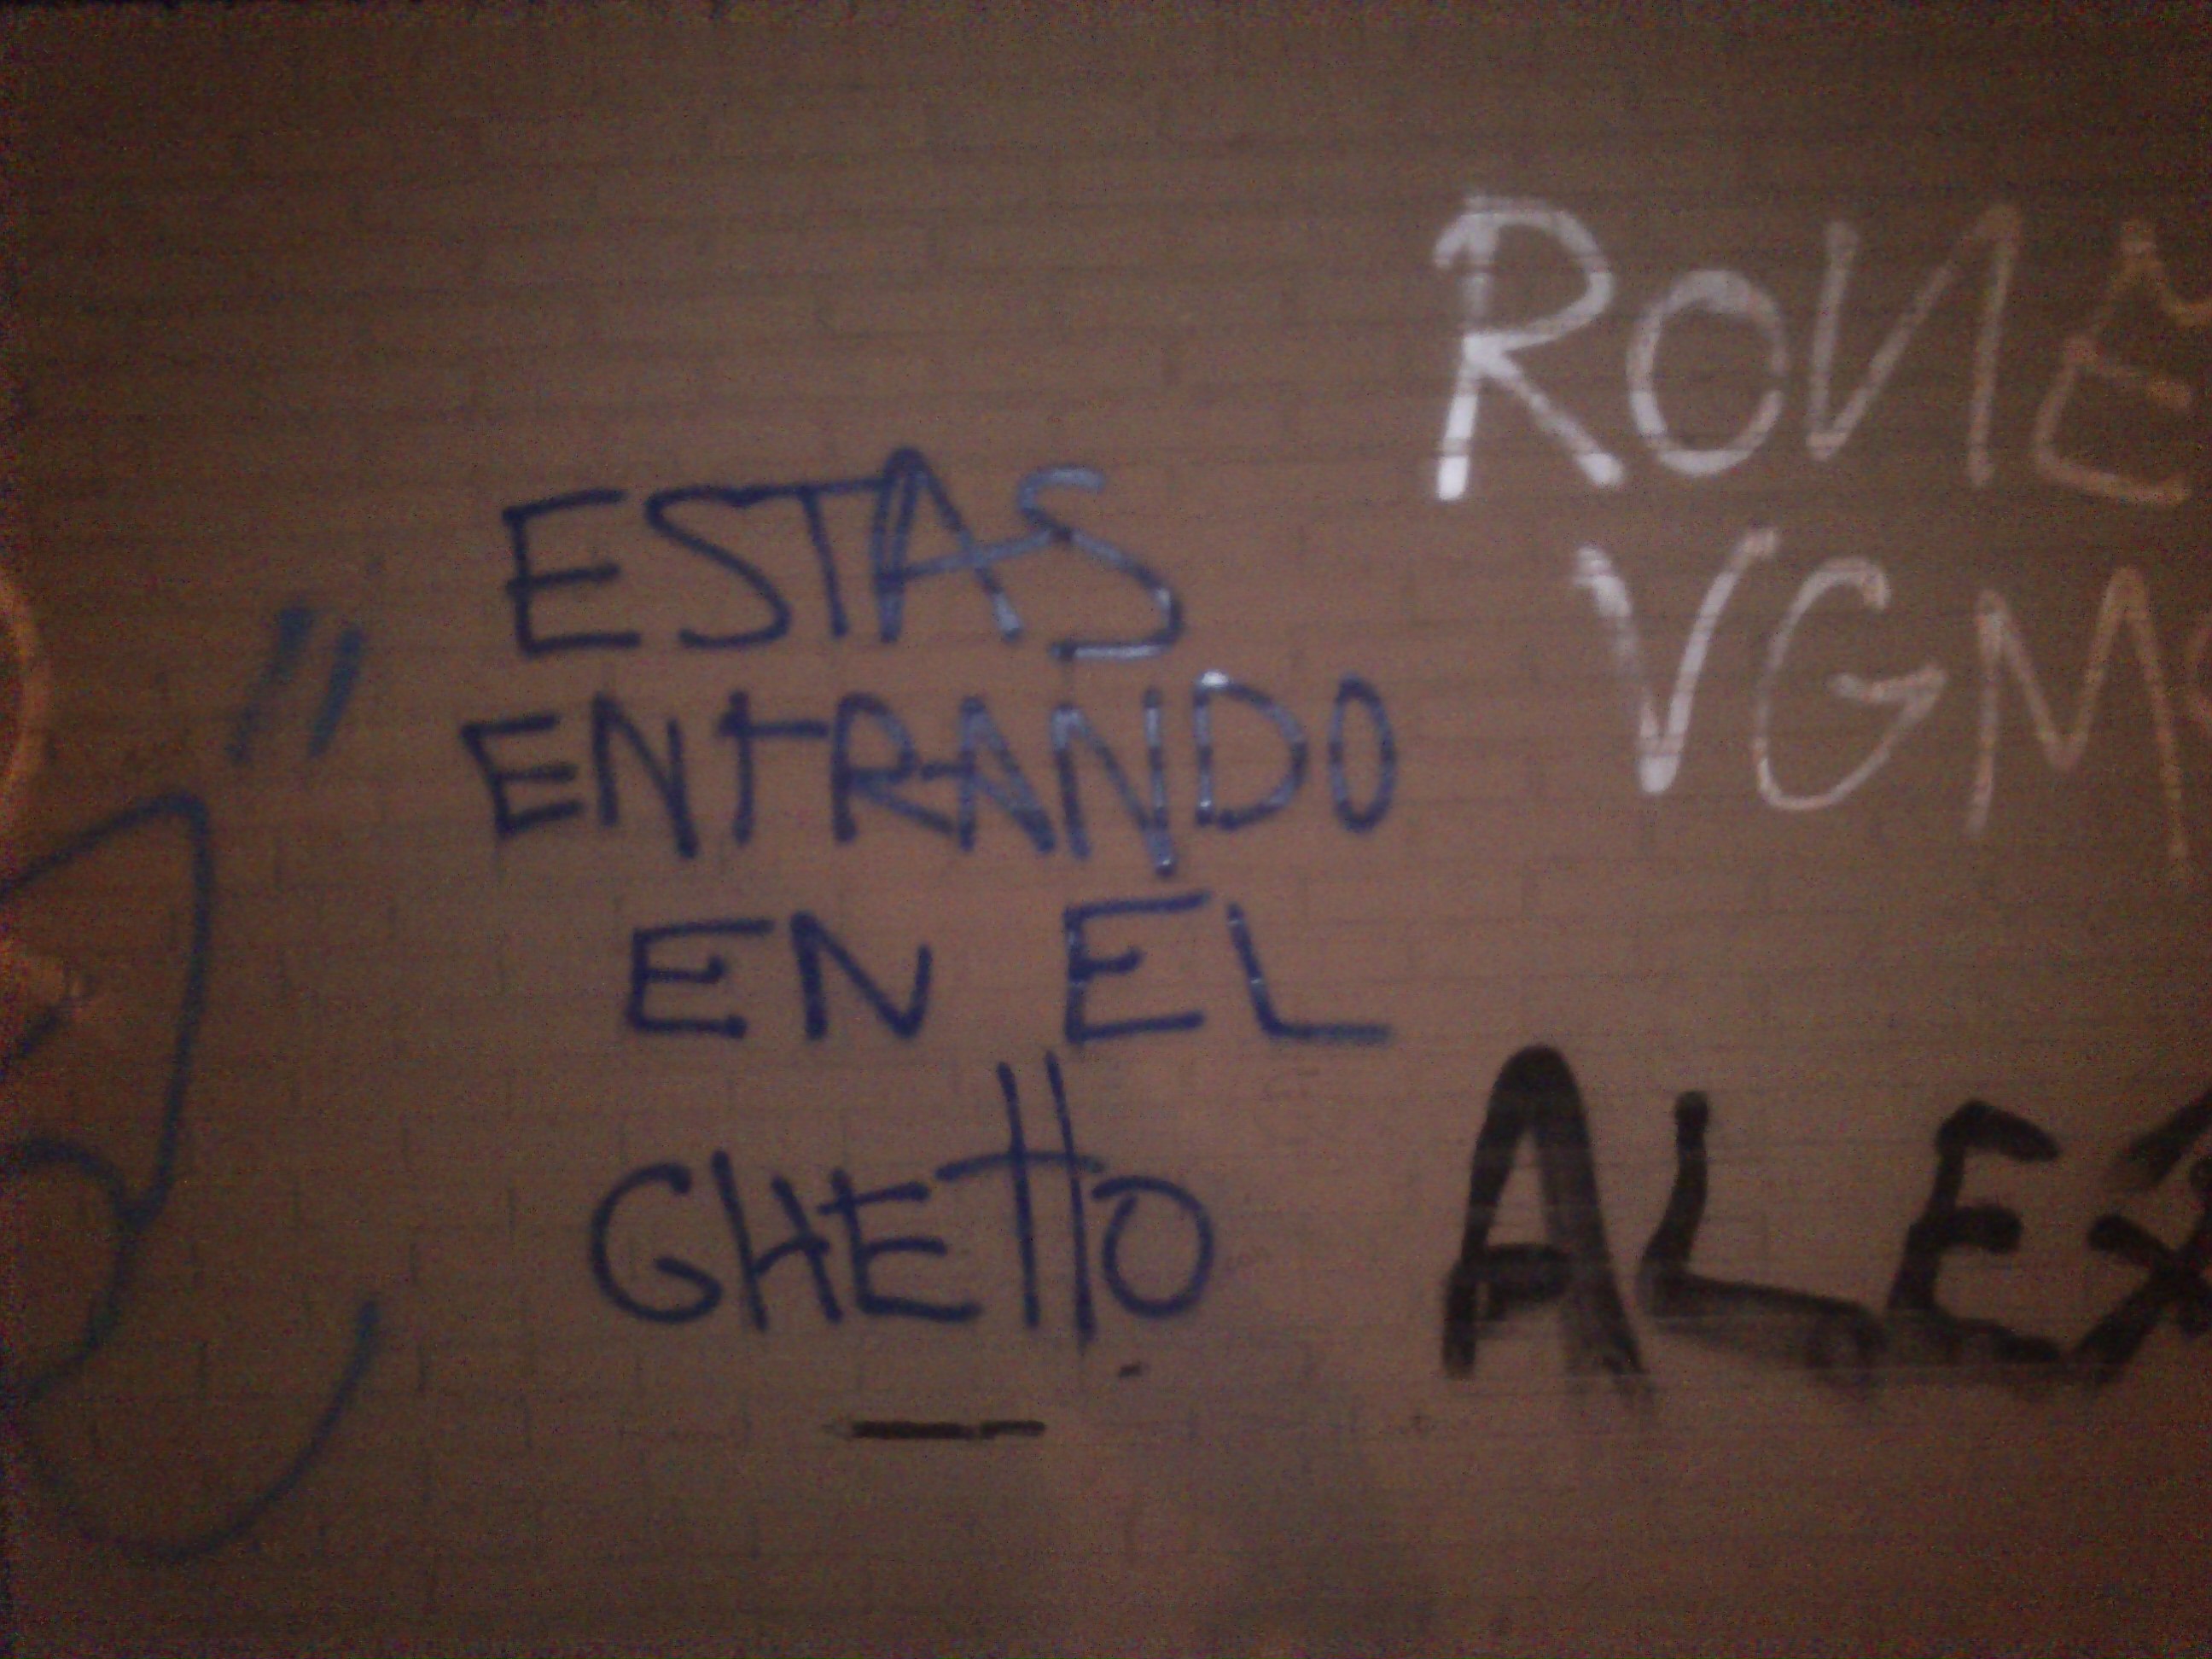 ESTAS
ENTRANDO
EN EL
GHETTO
RONE
VGM
ALEX